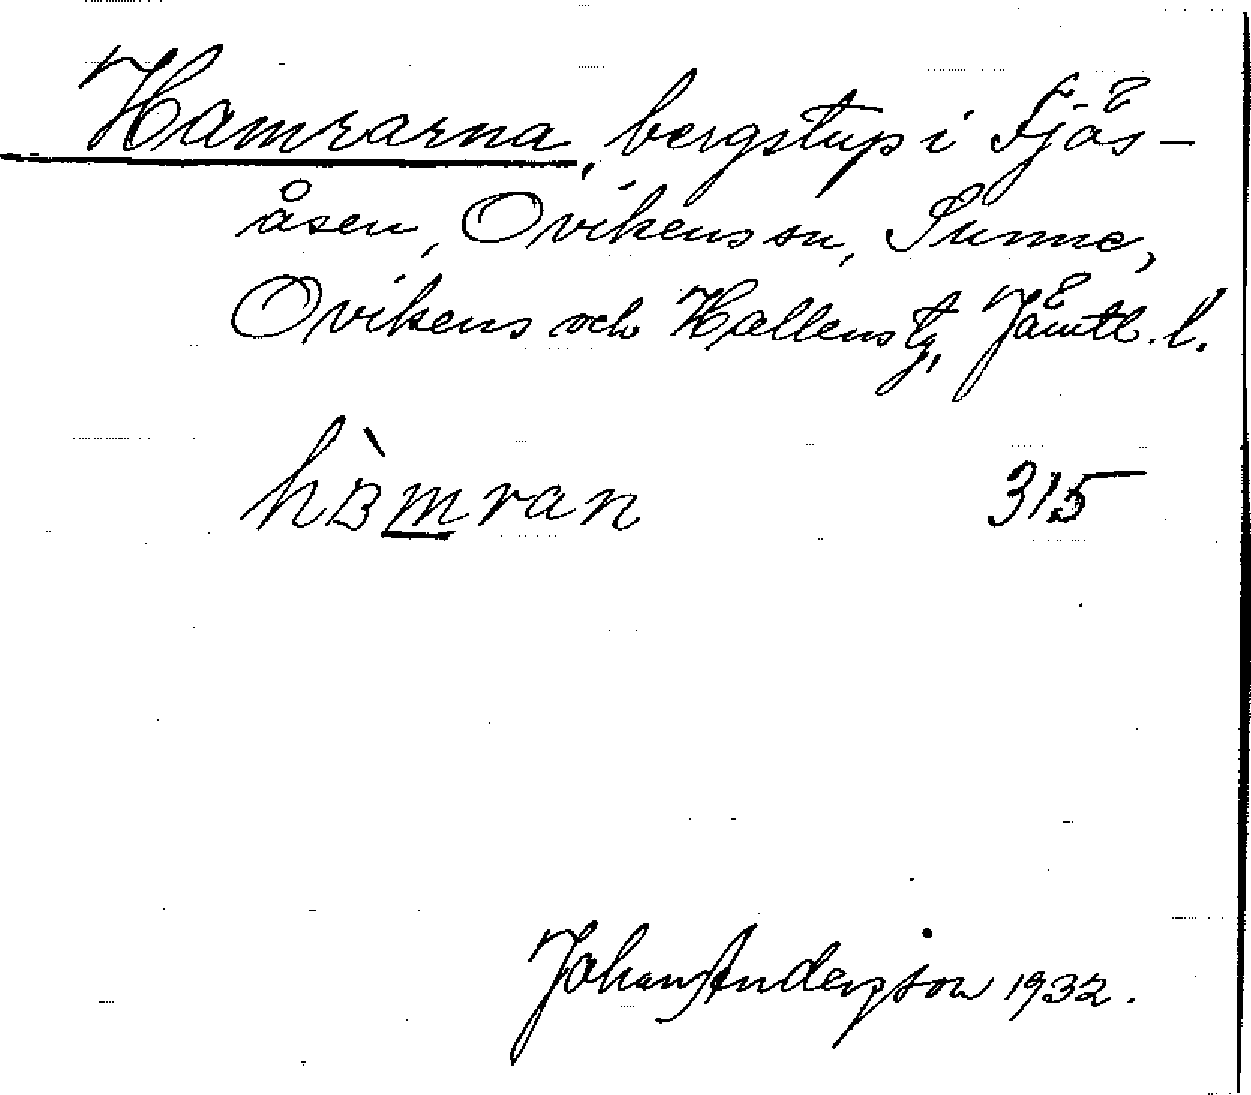 Hamrarna, bergstup i Fjös-
åsen, Ovikens sn, Sunne,
Ovikens och Hallens tg, Jämtl. l.
hàmran 315
Johan Anderson 1932.